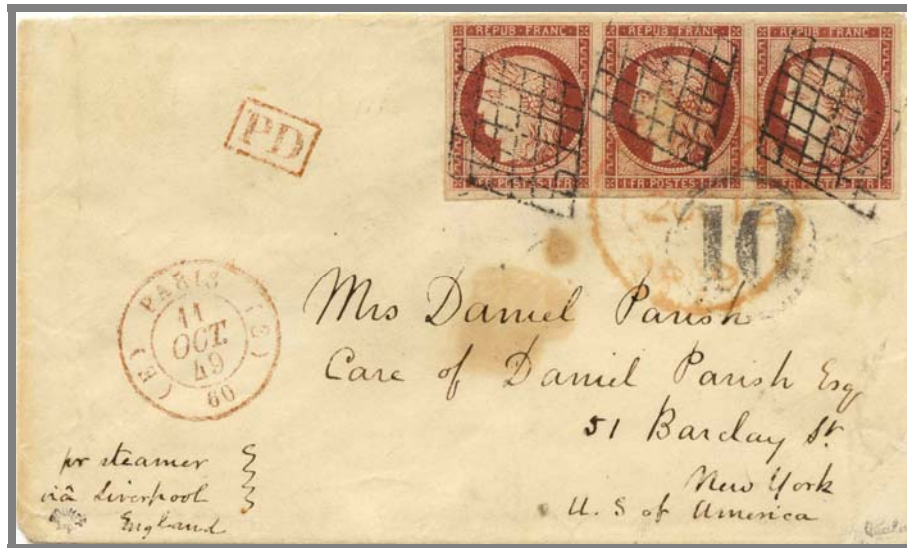 REPUB·FRANC· REPUB·FRANC· REPUB·FRANC·
1·FR·POSTES·1·FR 1·FR·POSTES·1·FR 1·FR·POSTES·1·FR
PD
10
(E) PARIS (E)
11
OCT.
49
60
Mrs Daniel Parish
Care of Daniel Parish Esq
51 Barclay St
New York
U. S of America
pr steamer
viâ Liverpool
England